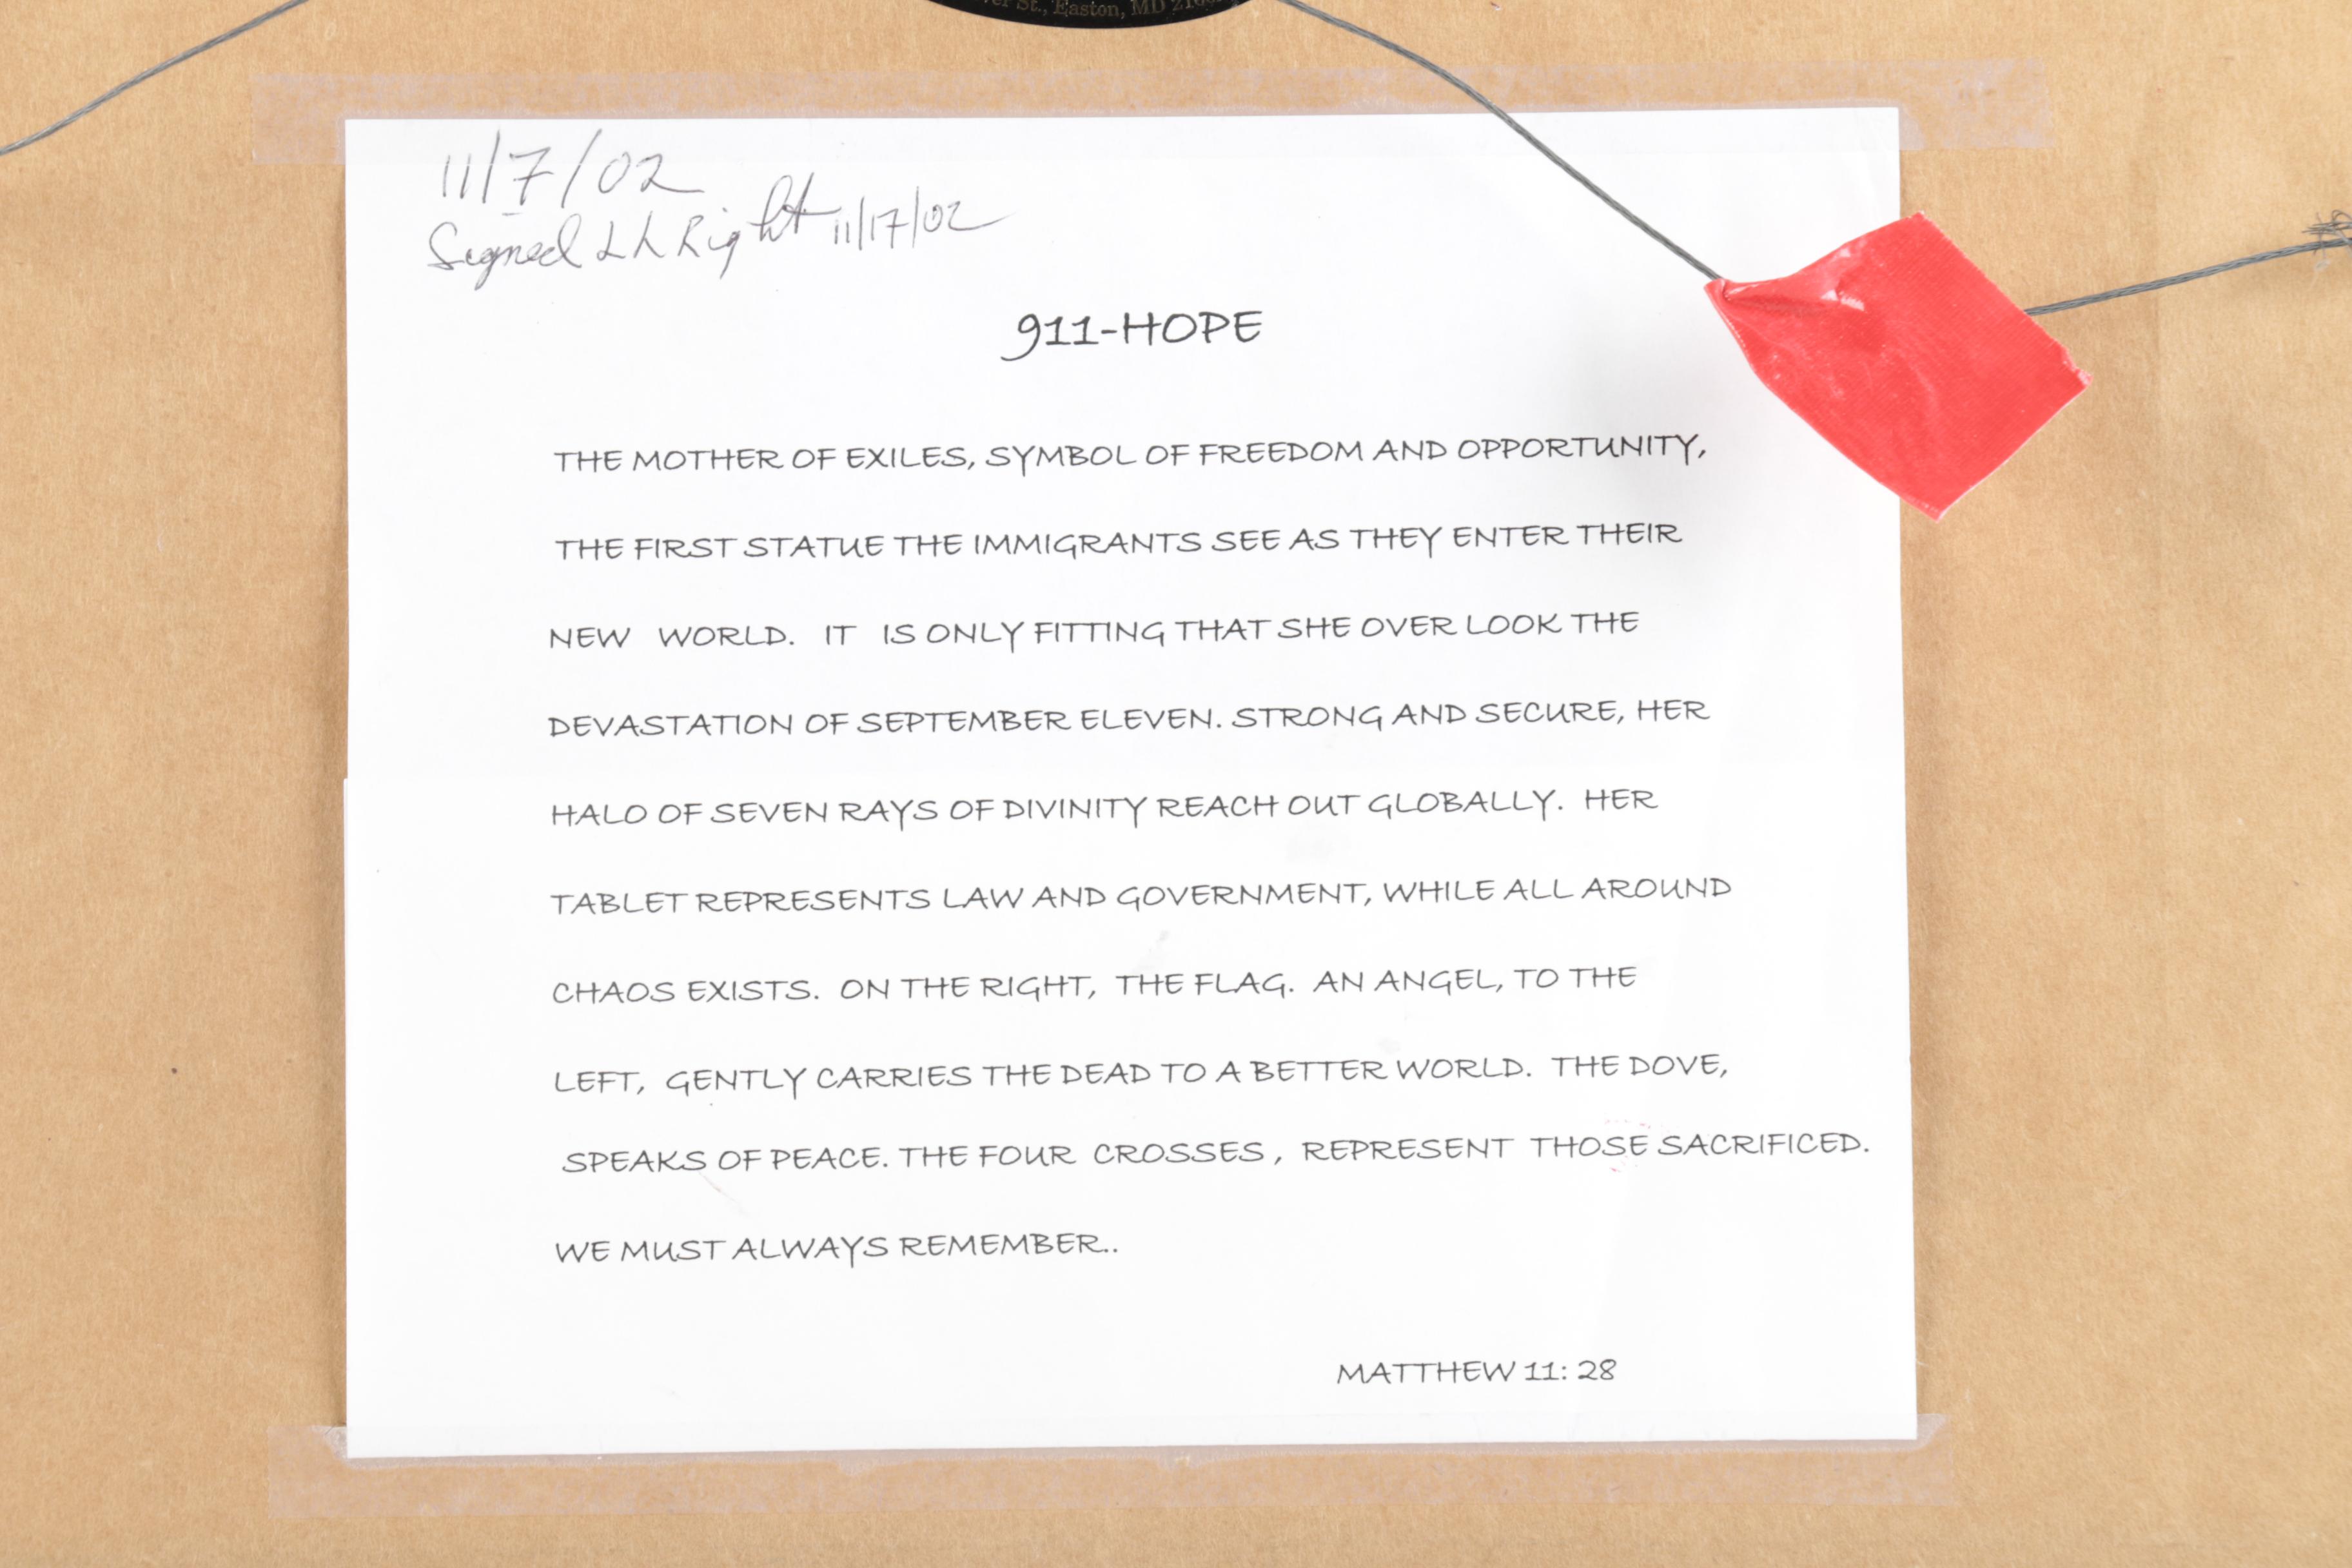 St., Easton, MD
11/7/02
Signed LL Right 11/17/02
911-HOPE
THE MOTHER OF EXILES, SYMBOL OF FREEDOM AND OPPORTUNITY,
THE FIRST STATUE THE IMMIGRANTS SEE AS THEY ENTER THEIR
NEW WORLD. IT IS ONLY FITTING THAT SHE OVER LOOK THE
DEVASTATION OF SEPTEMBER ELEVEN. STRONG AND SECURE, HER
HALO OF SEVEN RAYS OF DIVINITY REACH OUT GLOBALLY. HER
TABLET REPRESENTS LAW AND GOVERNMENT, WHILE ALL AROUND
CHAOS EXISTS. ON THE RIGHT, THE FLAG. AN ANGEL, TO THE
LEFT, GENTLY CARRIES THE DEAD TO A BETTER WORLD. THE DOVE,
SPEAKS OF PEACE. THE FOUR CROSSES, REPRESENT THOSE SACRIFICED.
WE MUST ALWAYS REMEMBER..
MATTHEW 11: 28